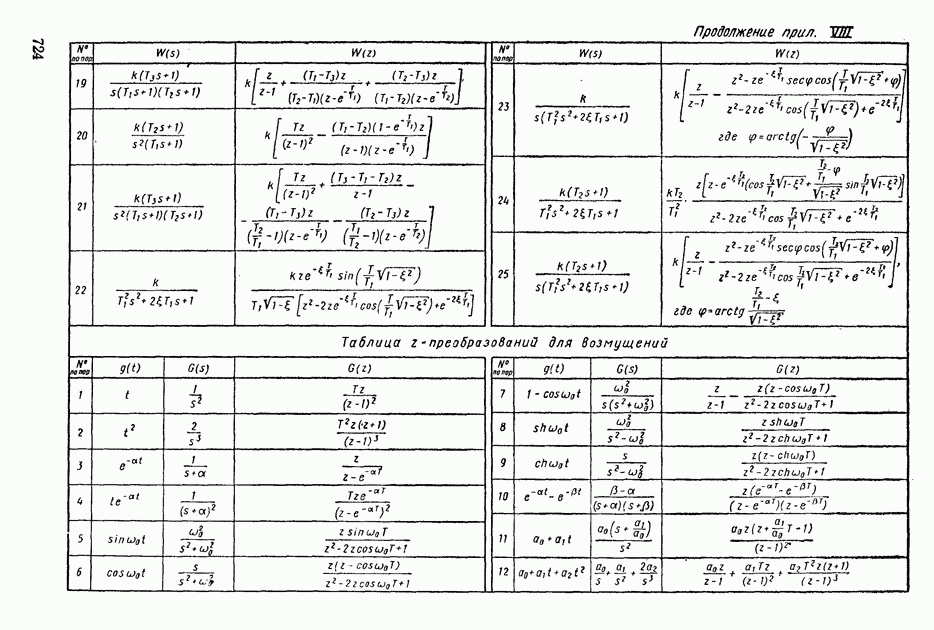 724
Продолжение прил. VIII
№ по пор. W(s) W(z)
19 k(T₃s+1) / s(T₁s+1)(T₂s+1) k[z/(z-1) + (T₁-T₃)z / (T₂-T₁)(z-e^(-T/T₁)) + (T₂-T₃)z / (T₁-T₂)(z-e^(-T/T₂))],
20 k(T₂s+1) / s²(T₁s+1) k[Tz/(z-1)² - (T₁-T₂)(1-e^(-T/T₁))z / (z-1)(z-e^(-T/T₁))]
21 k(T₃s+1) / s²(T₁s+1)(T₂s+1) k[Tz/(z-1)² + (T₃-T₁-T₂)z / (z-1) -
- (T₁-T₃)z / (T₂/T₁-1)(z-e^(-T/T₁)) - (T₂-T₃)z / (T₁/T₂-1)(z-e^(-T/T₂))]
22 k / T₁²s²+2ξT₁s+1 kze^(-ξT/T₁) sin(T/T₁ √1-ξ²) / T₁√1-ξ [z²-2ze^(-ξT/T₁) cos(T/T₁ √1-ξ²)+e^(-2ξT/T₁)]
№ по пор. W(s) W(z)
23 k / s(T₁²s²+2ξT₁s+1) k[z/(z-1) - z²-ze^(-ξT/T₁) secφ cos(T/T₁ √1-ξ²+φ) / z²-2ze^(-ξT/T₁) cos(T/T₁ √1-ξ²)+e^(-2ξT/T₁)]
где φ=arctg(-φ/√1-ξ²)
24 k(T₂s+1) / T₁²s²+2ξT₁s+1 kT₂/T₁² · z[z-e^(-ξT₂/T₁)(cos T₂/T₁ √1-ξ²+ (T₂/T₁-φ)/√1-ξ² sin T₂/T₁ √1-ξ²)] / z²-2ze^(-ξT₂/T₁) cos T₂/T₁ √1-ξ²+e^(-2ξT₂/T₁)
25 k(T₂s+1) / s(T₁²s²+2ξT₁s+1) k[z/(z-1) - z²-ze^(-ξT₂/T₁) secφ cos(T₂/T₁ √1-ξ²+φ) / z²-2ze^(-ξT₂/T₁) cos T₂/T₁ √1-ξ²+e^(-2ξT₂/T₁)],
где φ=arctg (T₂/T₁-ξ)/√1-ξ²
Таблица z-преобразований для возмущений
№ по пор. g(t) G(s) G(z)
1 t 1/s² Tz/(z-1)²
2 t² 2/s³ T²z(z+1)/(z-1)³
3 e^(-αt) 1/(s+α) z/(z-e^(-αT))
4 te^(-αt) 1/(s+α)² Tze^(-αT)/(z-e^(-αT))²
5 sinω₀t ω₀²/(s²+ω₀²) z sinω₀T/(z²-2z cosω₀T+1)
6 cosω₀t s/(s²+ω₀²) z(z-cosω₀T)/(z²-2z cosω₀T+1)
№ по пор. g(t) G(s) G(z)
7 1-cosω₀t ω₀²/s(s²+ω₀²) z/(z-1) - z(z-cosω₀T)/(z²-2z cosω₀T+1)
8 shω₀t ω₀²/(s²-ω₀²) z shω₀T/(z²-2z chω₀T+1)
9 chω₀t s/(s²-ω₀²) z(z-chω₀T)/(z²-2z chω₀T+1)
10 e^(-αt)-e^(-βt) (β-α)/(s+α)(s+β) z(e^(-αT)-e^(-βT))/(z-e^(-αT))(z-e^(-βT))
11 a₀+a₁t a₀(s+a₁/a₀)/s² a₀z(z+a₁/a₀ T-1)/(z-1)²
12 a₀+a₁t+a₂t² a₀/s+a₁/s²+2a₂/s³ a₀z/(z-1)+a₁Tz/(z-1)²+a₂T²z(z+1)/(z-1)³